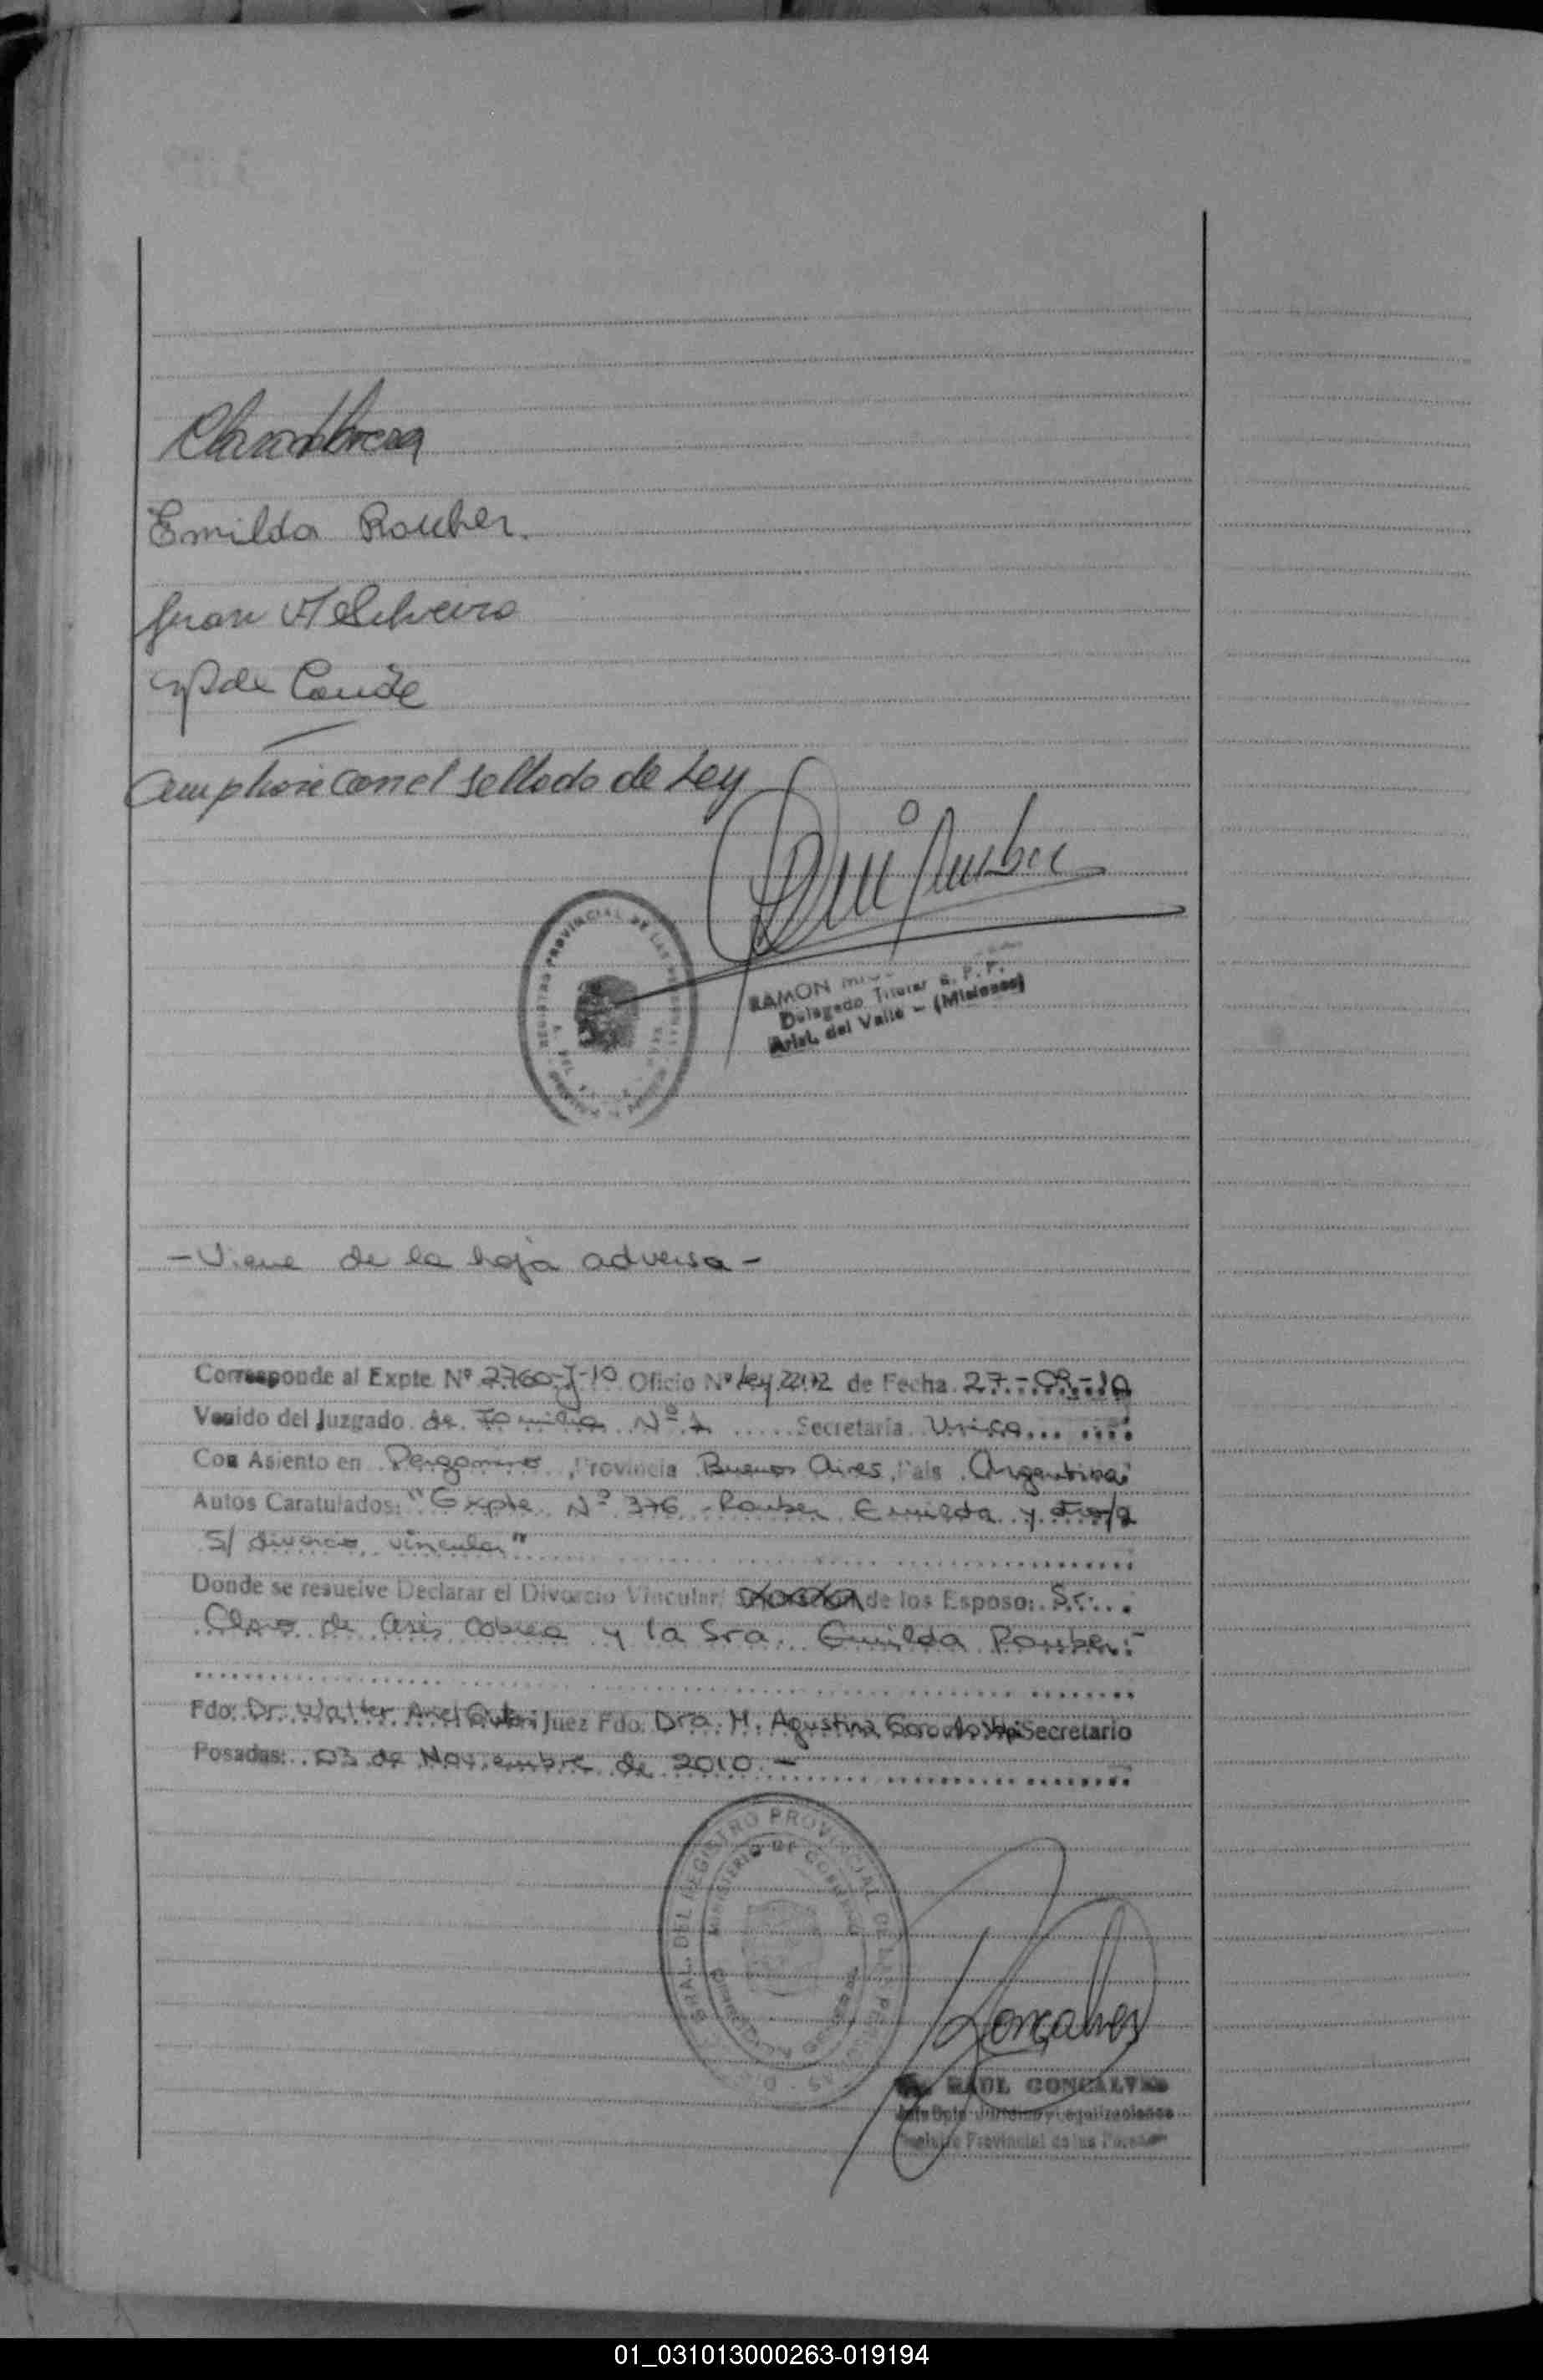 Emilda Rauber.
Juan A Silveira
de Conde
con el sellado de Ley
REGISTRO PROVINCIAL DE LAS PERSONAS
RAMON
Delegado Titular R. P. P.
Arist. del Valle - (Misiones)
- Viene de la hoja adversa -
Corresponde al Expte. Nº 2760-J-10 Oficio Nº Ley 22172 de Fecha 27-09-10
Venido del Juzgado de Familia Nº 1 Secretaría Unica
Con Asiento en Pergamino, Provincia Buenos Aires, País Argentina
Autos Caratulados: "Expte Nº 376 - Rauber Emilda y otro/a
s/ divorcio vincular"
Donde se resuelve Declarar el Divorcio Vincular/ de los Esposo: Sr.
Claro de Asis Cabrera y la Sra. Emilda Rauber.-
Fdo: Dr. Walter Juez Fdo. Dra. M. Agustina Secretario
Posadas: 03 de Noviembre de 2010.-
DIREC. GRAL. DEL REGISTRO PROVINCIAL DE LAS PERSONAS
MINISTERIO DE GOBIERNO
Goncalves
RAUL GONCALVES
Jefe Dpto. Jurídico y Legalizaciones
Registro Provincial de las Personas
01_031013000263-019194